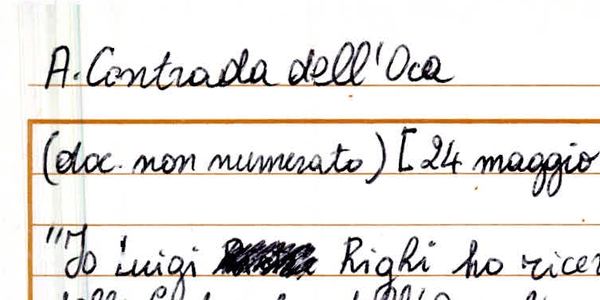 A. Contrada dell'Oca
(doc. non numerato) [24 maggio
"Io Luigi Righi ho ricer